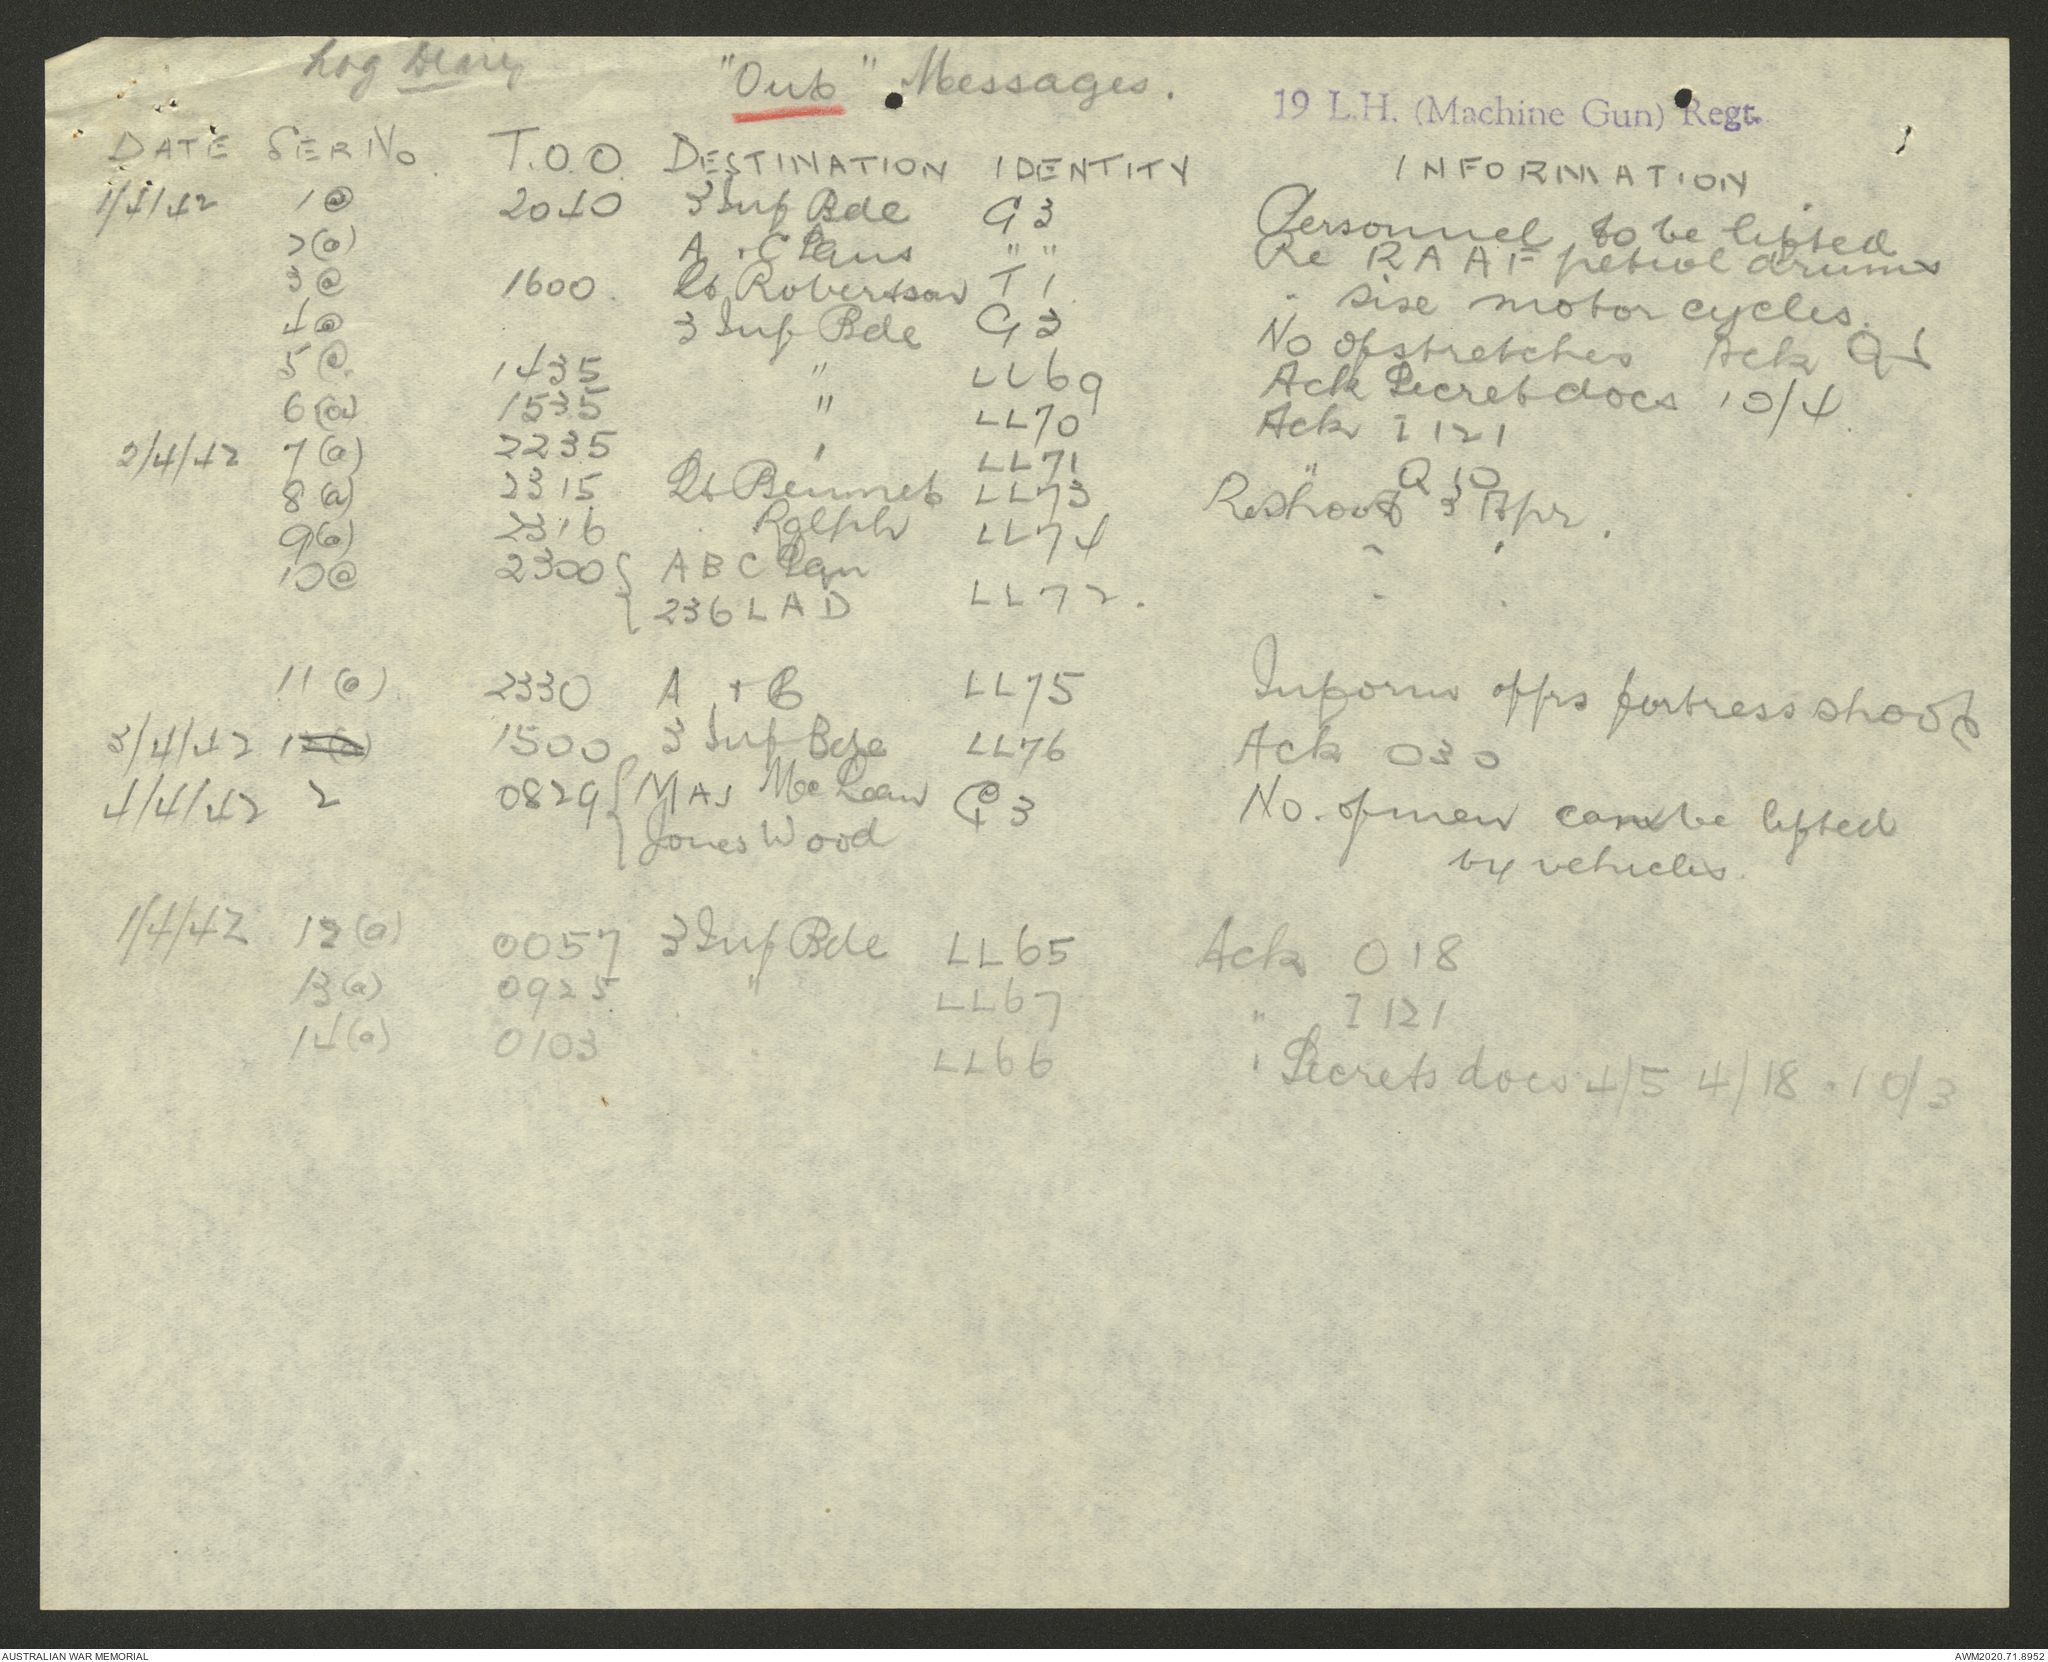 Log Diary "Out" Messages.
19 L.H. (Machine Gun) Regt.
DATE SER No. T.O.O. DESTINATION IDENTITY INFORMATION
1/4/42 1(a) 2040 3 Inf Bde G3 Personnel to be lifted
2(a) A + C " " Re RAAF petrol drums
3(a) 1600. Lt Robertson T1 " size motor cycles.
4(a) 3 Inf Bde G3 No of stretches Ack
5(a) 1435 " LL69 Ack Secret docs 10/4.
6(a) 1535 " LL70 Ack I 121
2/4/42 7(a) 2235 " LL71 " Q 10
8(a) 2315 Lt Bennet LL73 Re Shoot 3 Apr.
9(a) 2316 " Ralph LL74 " "
10(a) 2300 { A B C LL72. " "
{ 236 L A D
11(a) 2330 A + B LL75 Inform offrs fortress shoot
3/4/42 1500 3 Inf Bde LL76 Ack 030
4/4/42 2 0829 { MAJ McLean G3 No. of men can be lifted
{ Jones Wood by vehicles.
1/4/42 12(a) 0057 3 Inf Bde LL65 Ack O18
13(a) 0925 " LL67 " I 121
14(a) 0103 " LL66 " Secrets docs 4/5 4/18 . 10/3
AUSTRALIAN WAR MEMORIAL AWM2020.71.8952